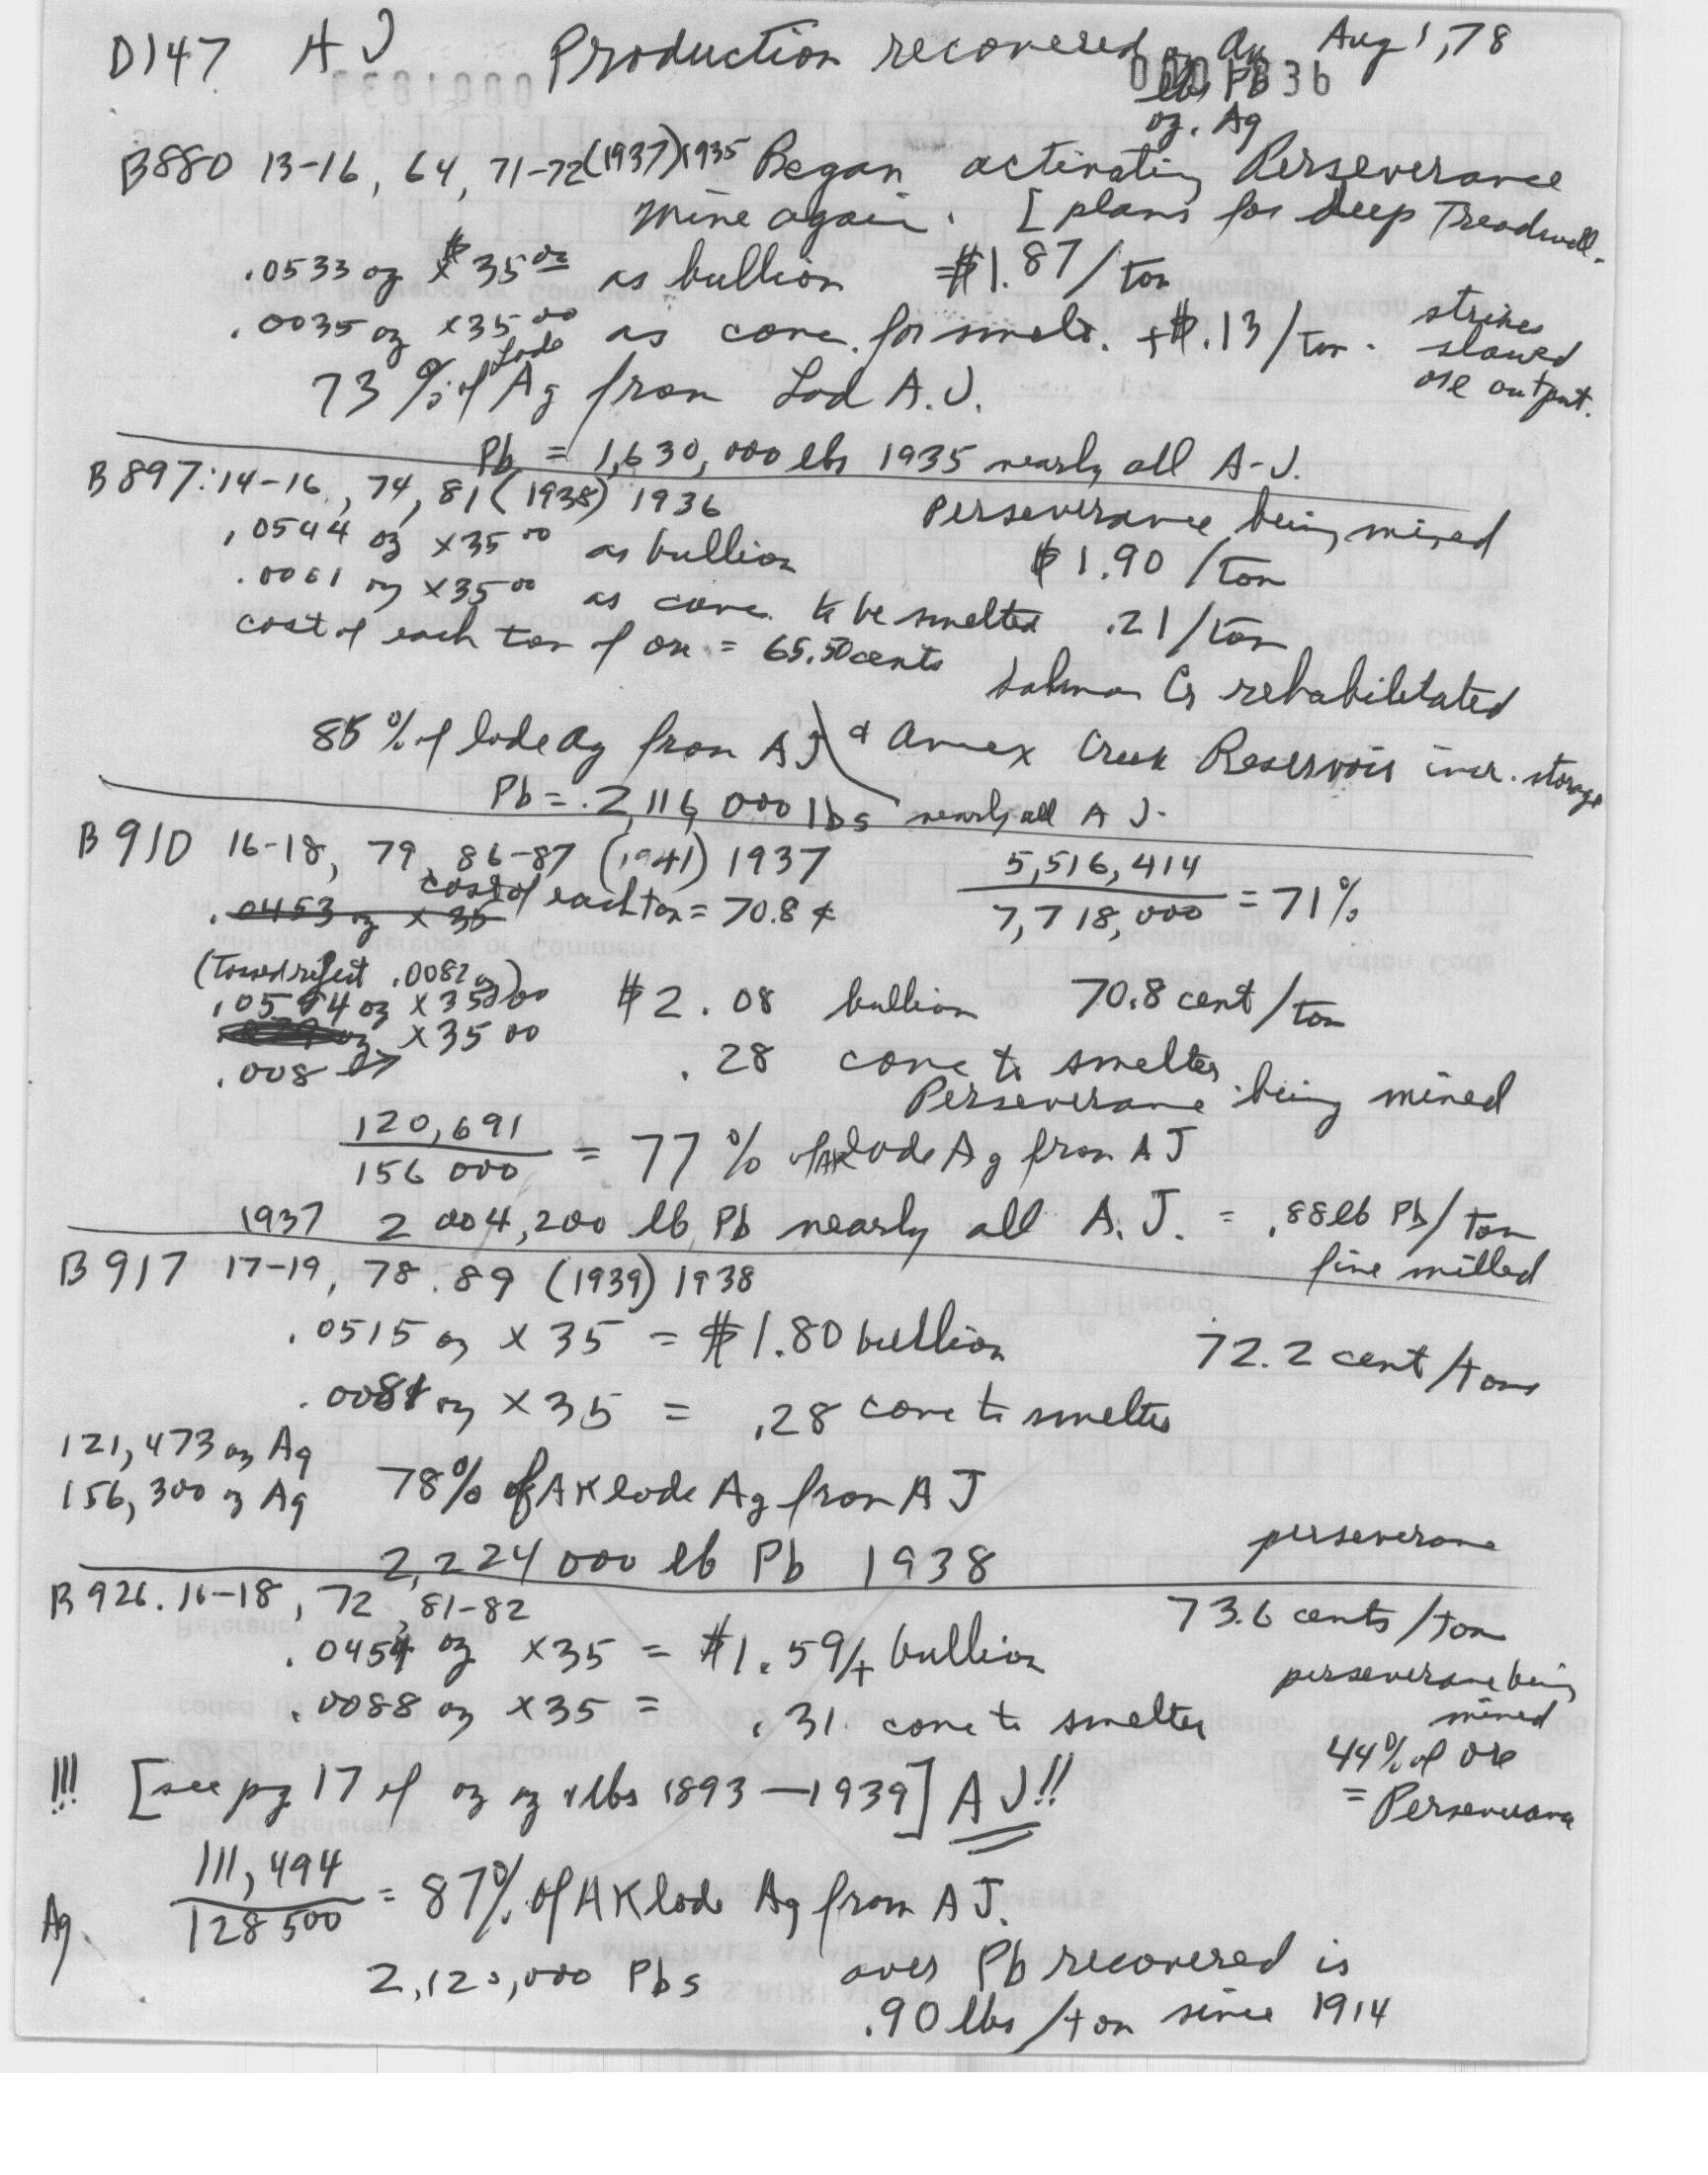 D147 AJ Production recovered oz Au Aug 1, 78
0001836
lbs Pb
oz. Ag
B880 13-16, 64, 71-72 (1937) 1935 Began activating Perseverance
mine again. [plans for deep Treadwell.
.0533 oz x $35.00 as bullion =$1.87/ton
.0035 oz x 35.00 as conc. for smelt. +$.13/ton. strikes slowed ore output.
73% of Lode Ag from Lod A.J.
Pb = 1,630,000 lbs 1935 nearly all A-J.
B897: 14-16, 74, 81 (1938) 1936 Perseverance being mined
.0544 oz x 35.00 as bullion $1.90/ton
.0061 oz x 35.00 as conc. to be smelted .21/ton
cost of each ton of ore = 65.50 cents
Salmon Cr rehabilitated
85% of lode Ag from AJ & Annex Creek Reservoir incr. storage
Pb = 2,116,000 lbs nearly all AJ.
B910 16-18, 79, 86-87 (1941) 1937 5,516,414
cost of each ton = 70.8 ¢ 7,718,000 = 71%
.0453 oz x 35
(Tossed reject .0082 oz)
.0594 oz x 35.00 $2.08 bullion 70.8 cent/ton
oz x 35 00
.008 .28 conc to smelter
Perseverance being mined
120,691
156 000 = 77% of AK lode Ag from AJ
1937 2 004,200 lb Pb nearly all A.J. = .88 lb Pb/ton
fine milled
B917 17-19, 78. 89 (1939) 1938
.0515 oz x 35 = $1.80 bullion 72.2 cent/tons
.0081 oz x 35 = .28 conc to smelter
121,473 oz Ag
156,300 oz Ag 78% of AK lode Ag from AJ
2,224 000 lb Pb 1938 perseverance
B926. 16-18, 72, 81-82 73.6 cents/ton
.0454 oz x35 = $1.59/t bullion
.0088 oz x35 = .31 conc to smelter
perseverance being mined
44% of ore = Perseverance
!!! [see pg 17 of oz oz & lbs 1893–1939] AJ!!
Ag. 111,494
128 500 = 87% of AK lode Ag from AJ.
2,120,000 Pbs aver Pb recovered is
.90 lbs/ton since 1914